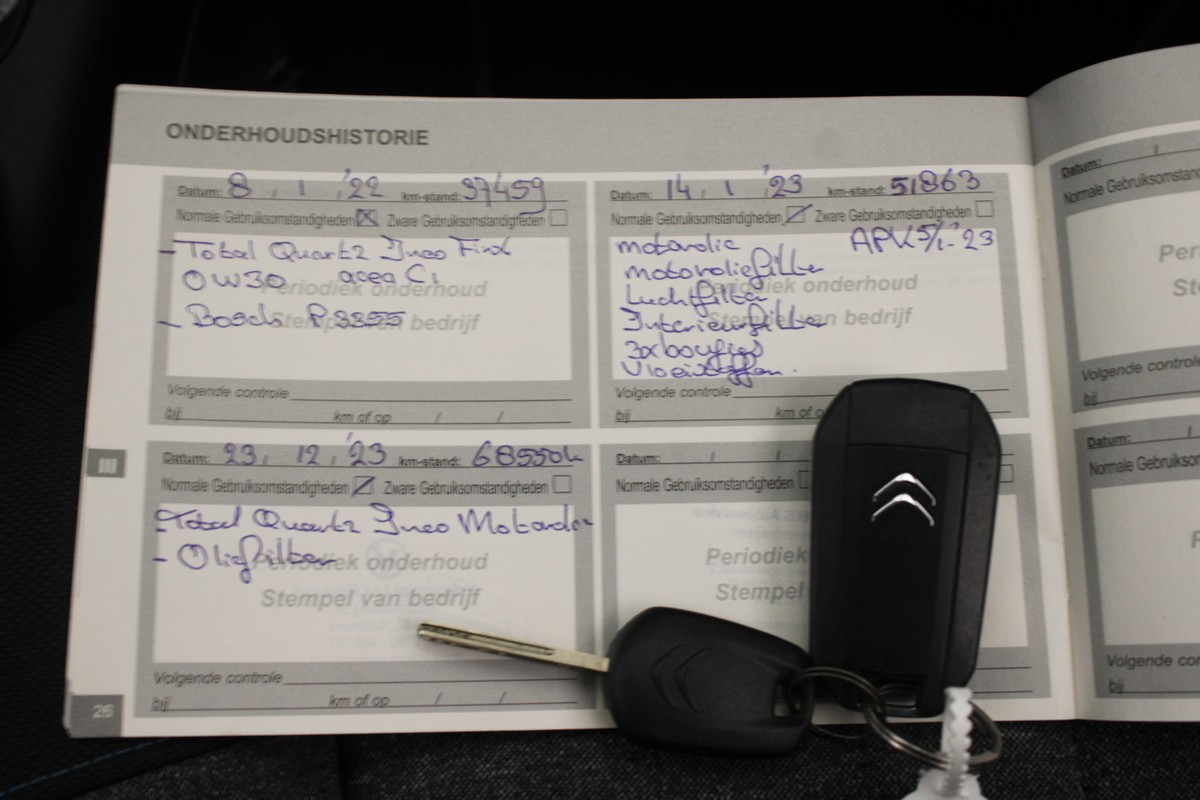 ONDERHOUDSHISTORIE
Datum: 8 / 1 / '22 km-stand: 37459
Normale Gebruiksomstandigheden Zware Gebruiksomstandigheden
- Total Quartz Ineo First
0W30 acea C1
- Bosch P3355
Periodiek onderhoud
Stempel van bedrijf
Volgende controle
bij km of op / /
Datum: 14 / 1 / '23 km-stand: 51863
Normale Gebruiksomstandigheden Zware Gebruiksomstandigheden
motorolie APK 5/1-'23
motoroliefilter
Luchtfilter
Interieurfilter
3x bougies
Vloeistoffen.
Periodiek onderhoud
Stempel van bedrijf
Volgende controle
bij km of o
Datum: 23 / 12 / '23 km-stand: 68550k
Normale Gebruiksomstandigheden Zware Gebruiksomstandigheden
- Total Quartz Ineo
- Oliefilter
Periodiek onderhoud
Stempel van bedrijf
Volgende controle
bij km of op / /
Datum: / /
Normale Gebruiksomstandigheden
Periodiek
Stempel
III
26
Datum: /
Normale Gebruiksomstand
Per
St
Volgende controle
bij
Datum: /
Normale Gebruiksomstan
P
Volgende con
bij